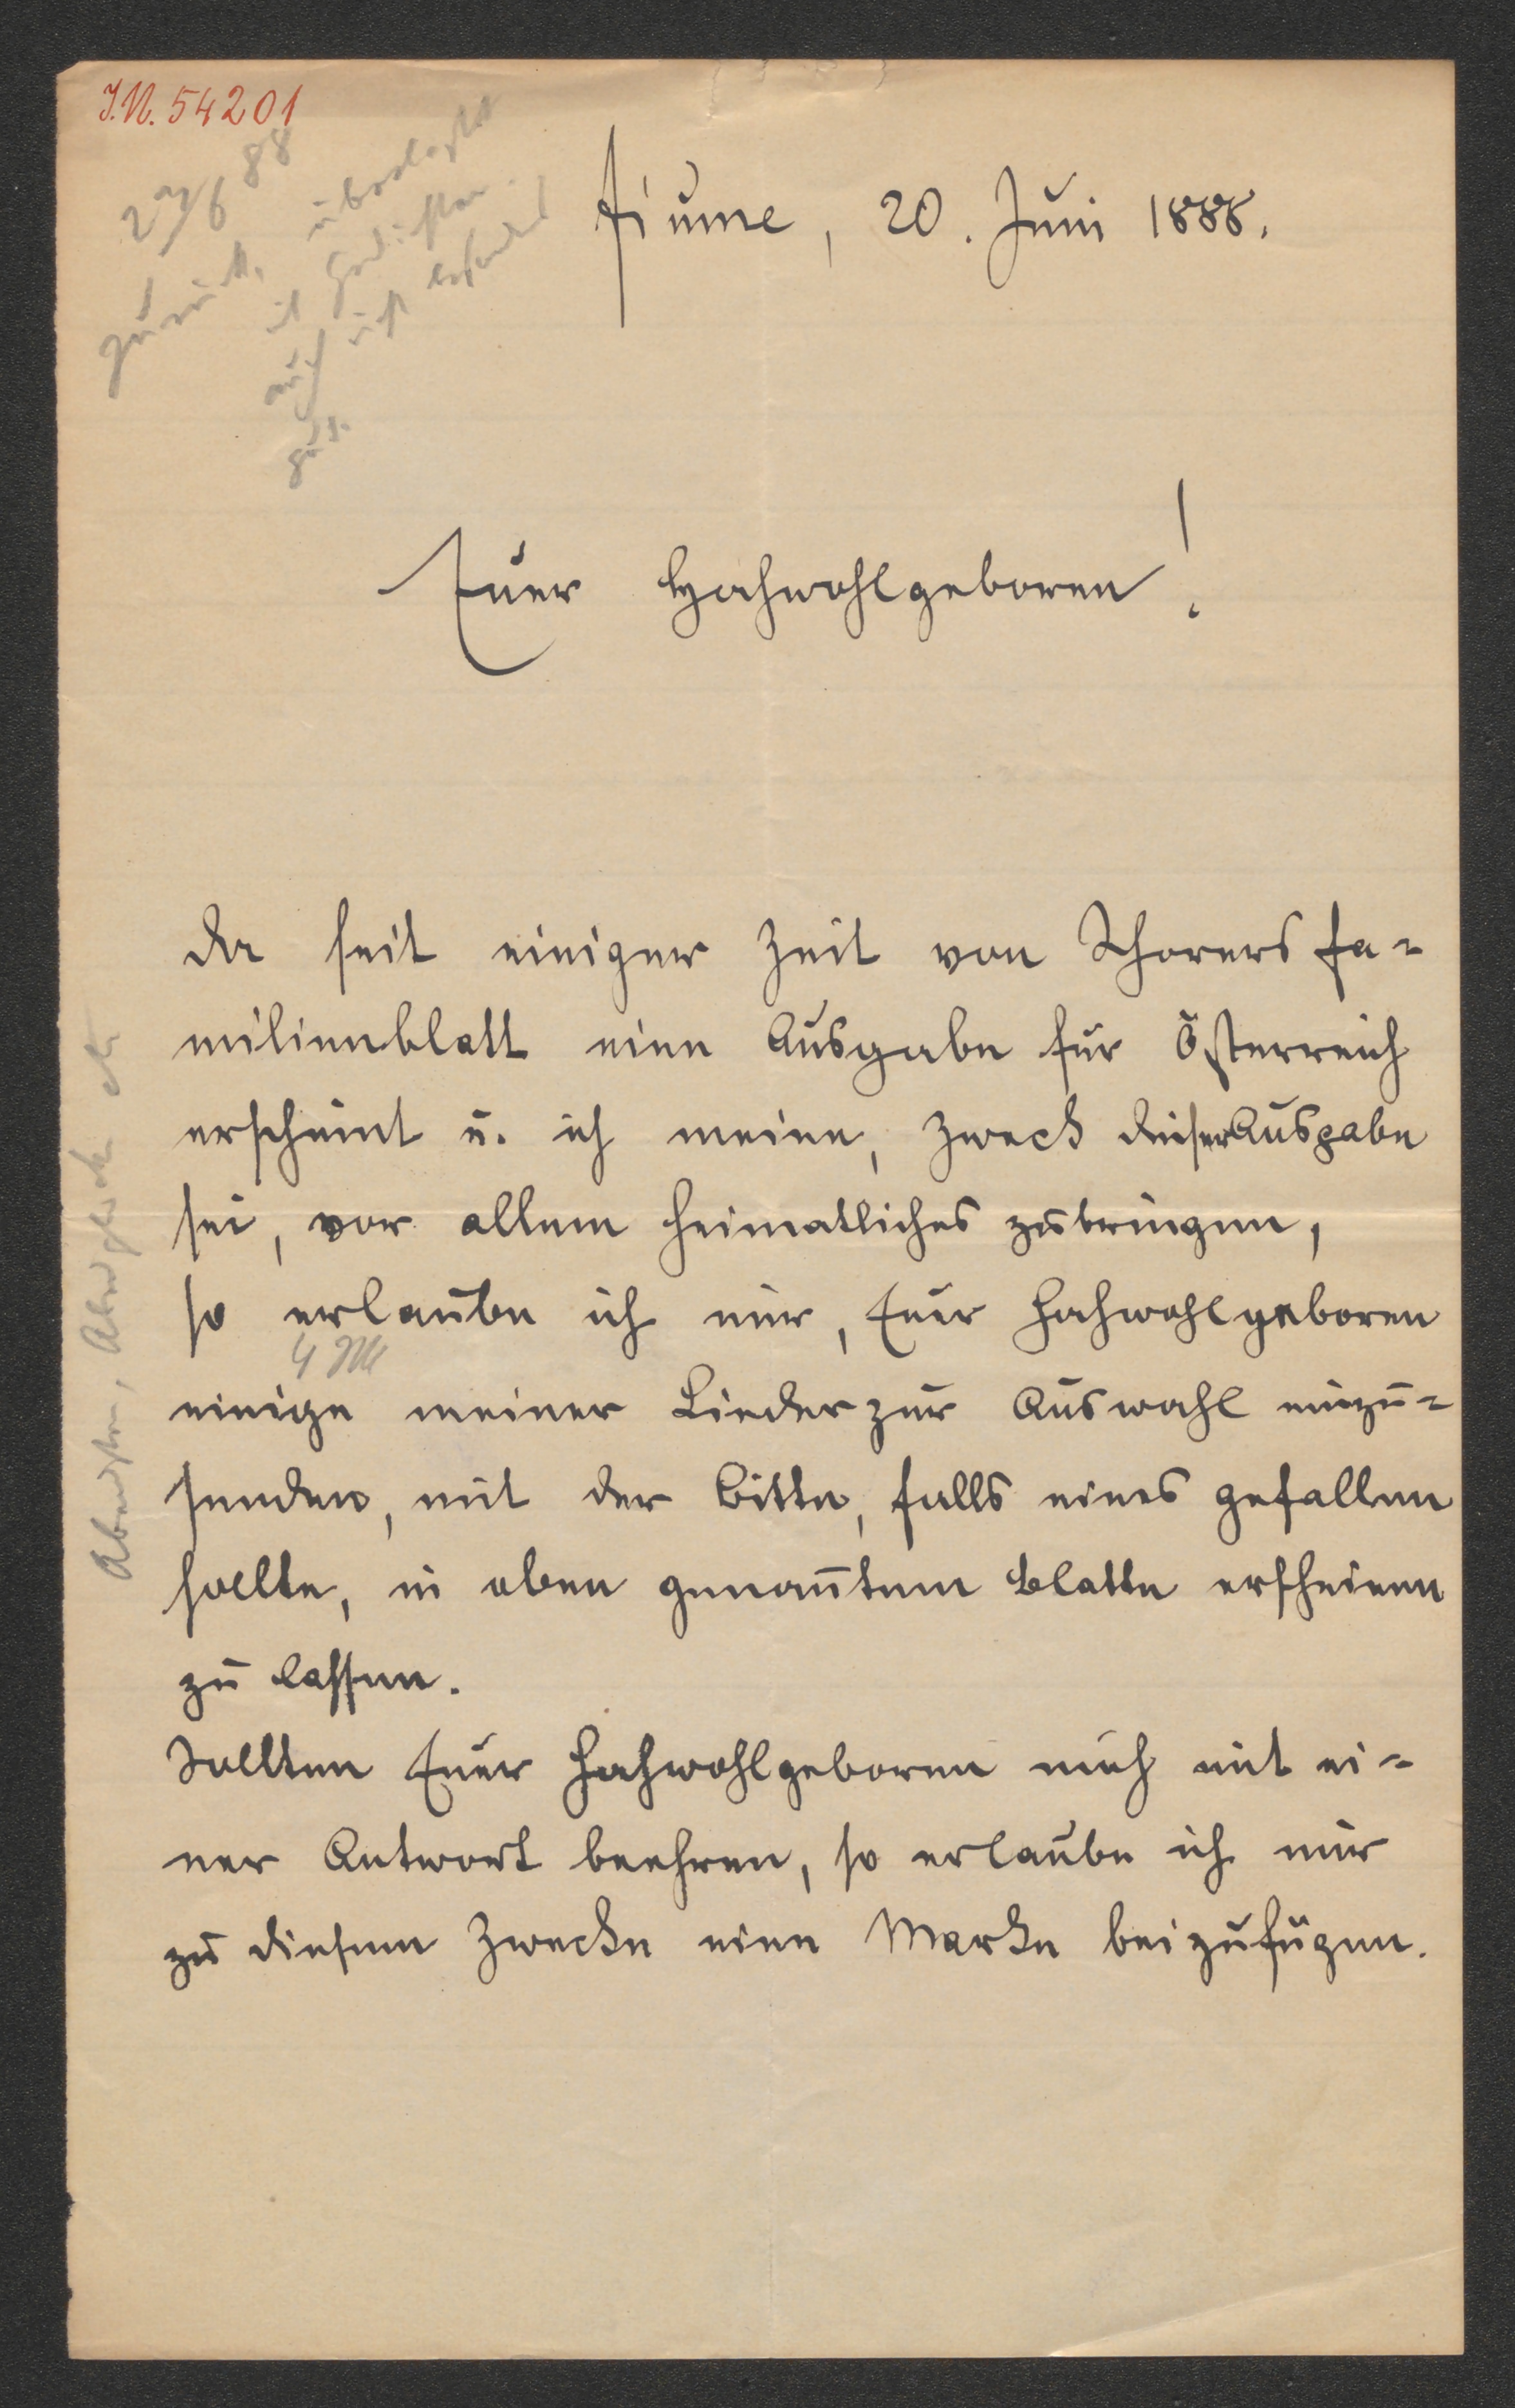 J.N. 54201
27/6 88
zurück.
überlegt
Fiume, 20. Juni 1888.
Euer Hochwohlgeboren!
Da seit einiger Zeit von Schorers Fa-
milienblatt eine Ausgabe für Österreich
erscheint u. ich meine, Zweck dieser Ausgabe
sei, vor allem Heimatliches zu bringen,
so erlaube ich mir, Euer Hochwohlgeboren
4 M
einige meiner Lieder zur Auswahl einzu-
senden, mit der Bitte, falls eines gefallen
sollte, in oben genanntem Blatte erscheinen
zu lassen.
Sollten Euer Hochwohlgeboren mich mit ei-
ner Antwort beehren, so erlaube ich mir
zu diesem Zwecke eine Marke beizufügen.